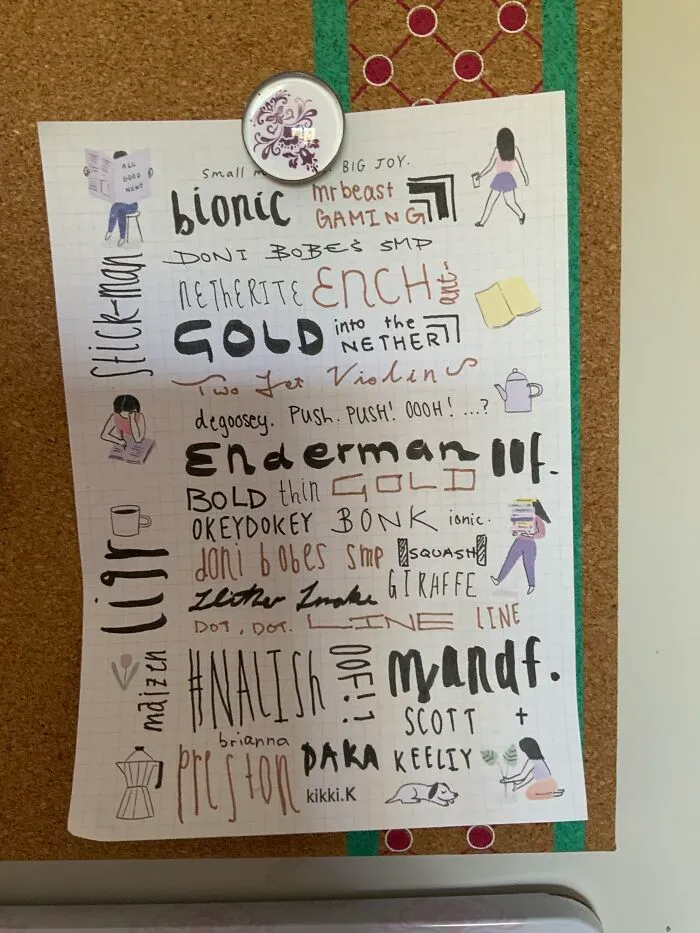 ALL GOOD NEWS
small BIG JOY.
bionic mrbeast GAMING
DONI BOBES SMP
NETHERITE ENCH ant-
stick-man
GOLD into the NETHER
Two Jet Violins
degoosey. PUSH. PUSH! OOOH! ...?
Enderman
BOLD thin GOLD
OKEYDOKEY BONK ionic.
doni bobes smp SQUASH
GIRAFFE
DOT, DOT. LINE LINE
#NALISh OOF!?
maizen
SCOTT +
brianna
PRESTON DAKA KEELIY
kikki.K